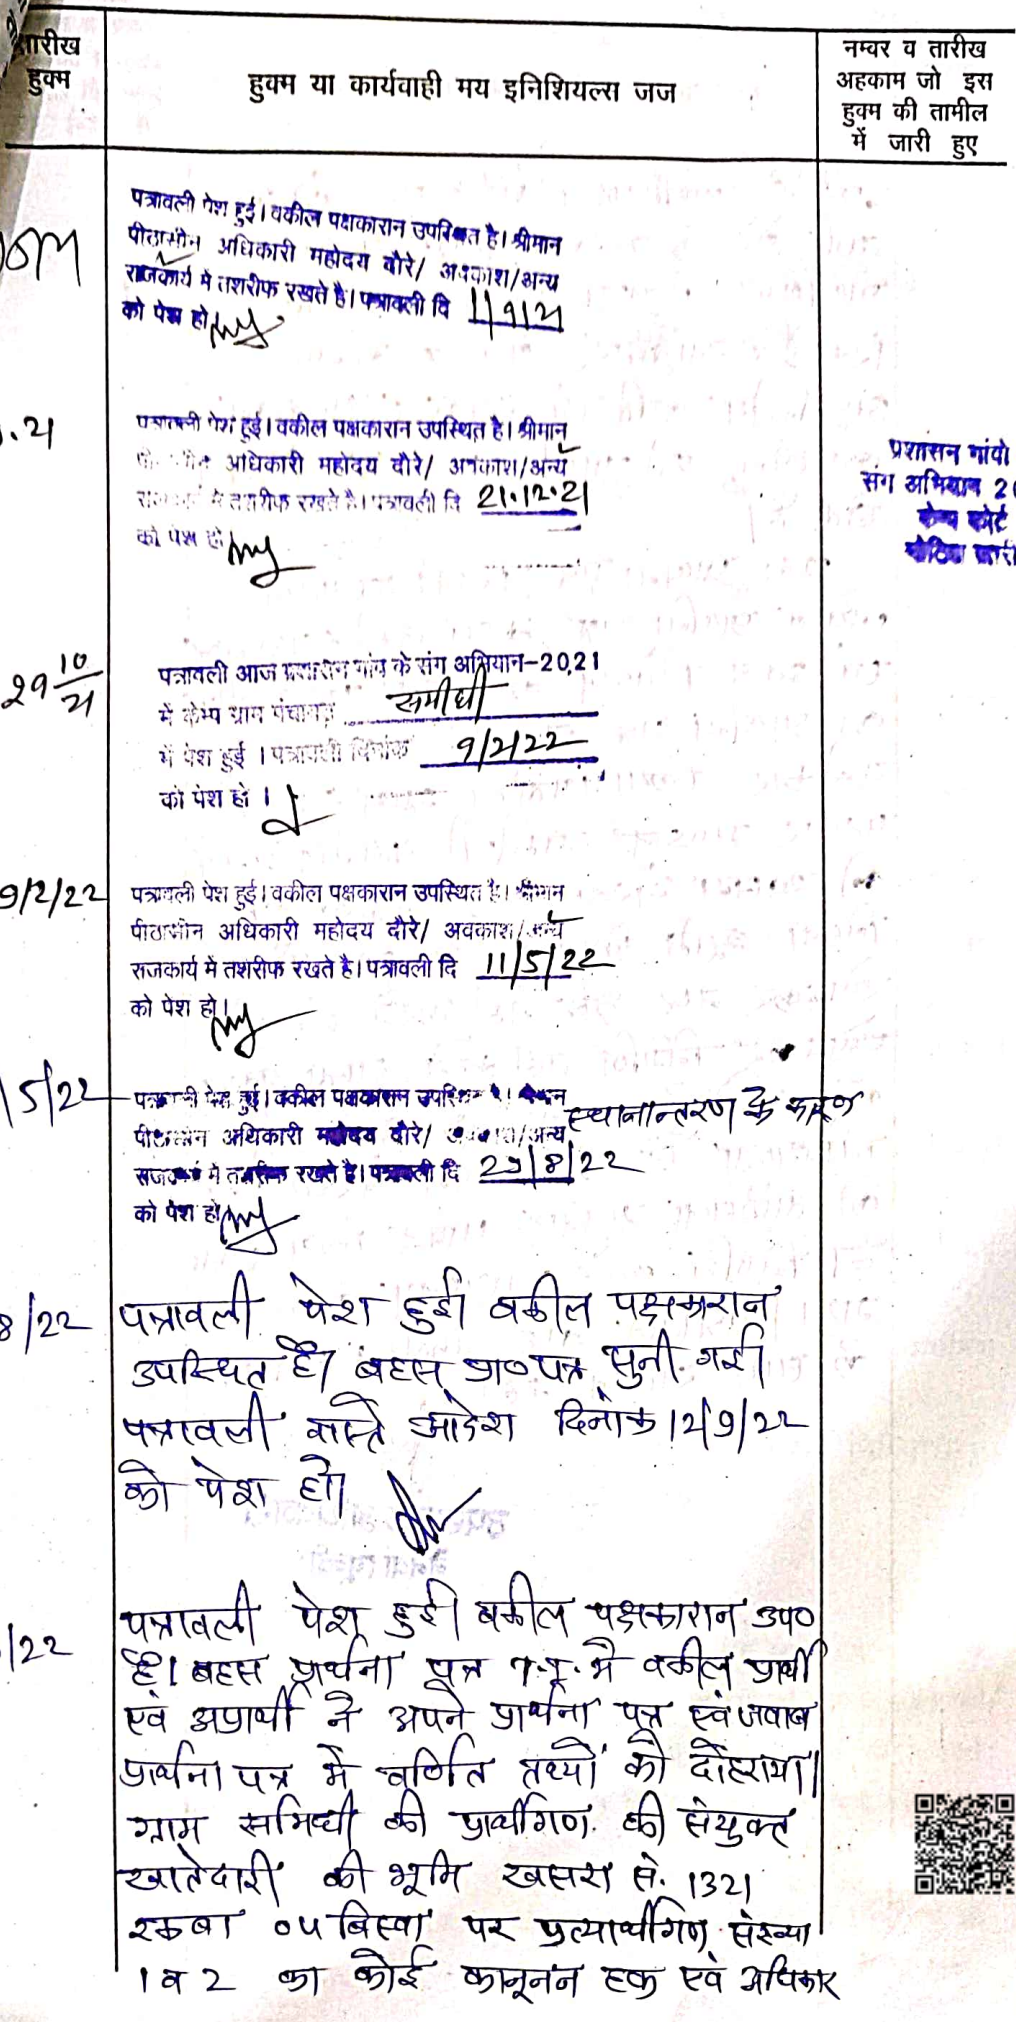 तारीख
हुक्म
हुक्म या कार्यवाही मय इनिशियल्स जज
नम्वर व तारीख
अहकाम जो इस
हुक्म की तामील
में जारी हुए
पत्रावली पेश हुई। वकील पक्षकारान उपस्थित है। श्रीमान
पीठासीन अधिकारी महोदय दौरे/ अवकाश/अन्य
राजकार्य मे तशरीफ रखते है। पत्रावली दि 1/9/21
को पेश हो।
.21
पत्रावली पेश हुई। वकील पक्षकारान उपस्थित है। श्रीमान
अधिकारी महोदय दौरे/ अवकाश/अन्य
मे तशरीफ रखते है। पत्रावली दि 21.12.21
को पेश हो
प्रशासन गांवो
संग अभियान 2
केम्प कोर्ट
नोटिस जारी
29 10/21
पत्रावली आज प्रशासन गांव के संग अभियान-2021
में केम्प ग्राम पंचायत समीधी
में पेश हुई । पत्रावली दिनांक 9/2/22
को पेश हो ।
9/2/22
पत्रावली पेश हुई। वकील पक्षकारान उपस्थित है। श्रीमान
पीठासीन अधिकारी महोदय दौरे/ अवकाश/अन्य
राजकार्य मे तशरीफ रखते है। पत्रावली दि 11/5/22
को पेश हो।
5/22
पत्रावली पेश हुई। वकील पक्षकारान उपस्थित है। श्रीमान
स्थानान्तरण के कारण
पीठासीन अधिकारी महोदय दौरे/ अवकाश/अन्य
राजकार्य मे तशरीफ रखते है। पत्रावली दि 29/8/22
को पेश हो
8/22
पत्रावली पेश हुई। वकील पक्षकारान
उपस्थित है। बहस प्रा०पत्र सुनी गई।
पत्रावली वास्ते आदेश दिनांक 12/9/22
को पेश हो।
/22
पत्रावली पेश हुई। वकील पक्षकारान उप०
है। बहस प्रार्थना पत्र में वकील प्रार्थी
एवं अप्रार्थी ने अपने प्रार्थना पत्र एवं जवाब
प्रार्थना पत्र में वर्णित तथ्यों को दोहराया।
ग्राम समिधी की प्रार्थीगण की संयुक्त
खातेदारी की भूमि खसरा सं. 1321
रकबा 04 बिस्वा पर प्रत्यार्थीगण संख्या
1 व 2 का कोई कानूनन हक एवं अधिकार